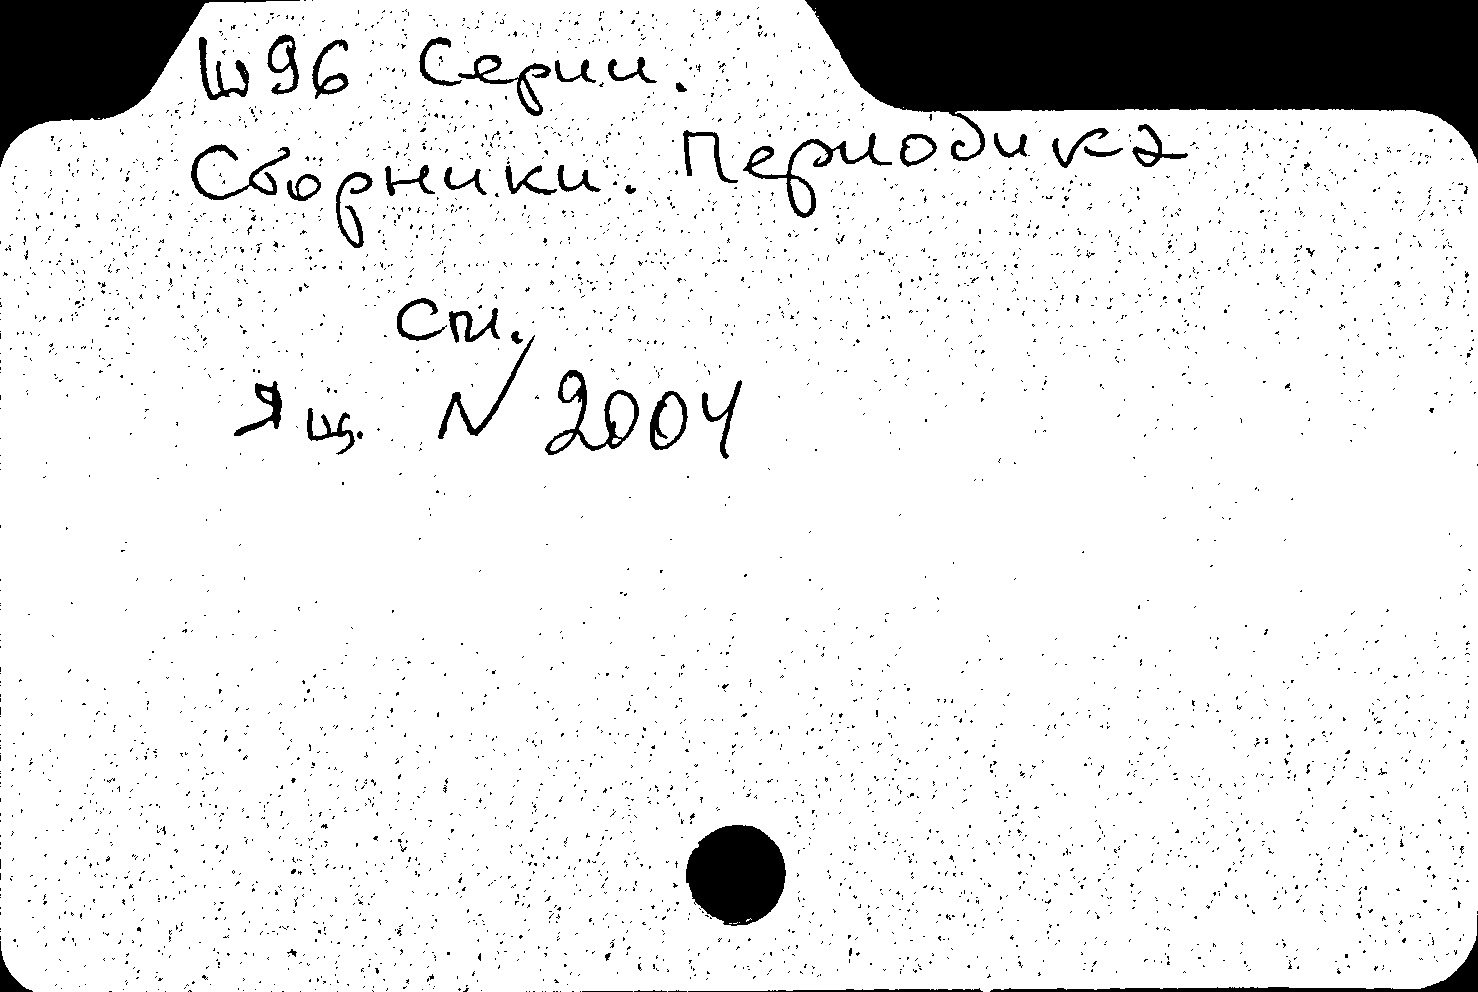 Ш96 Серии.
Сборники. Периодика
См.
Ящ. N 2004